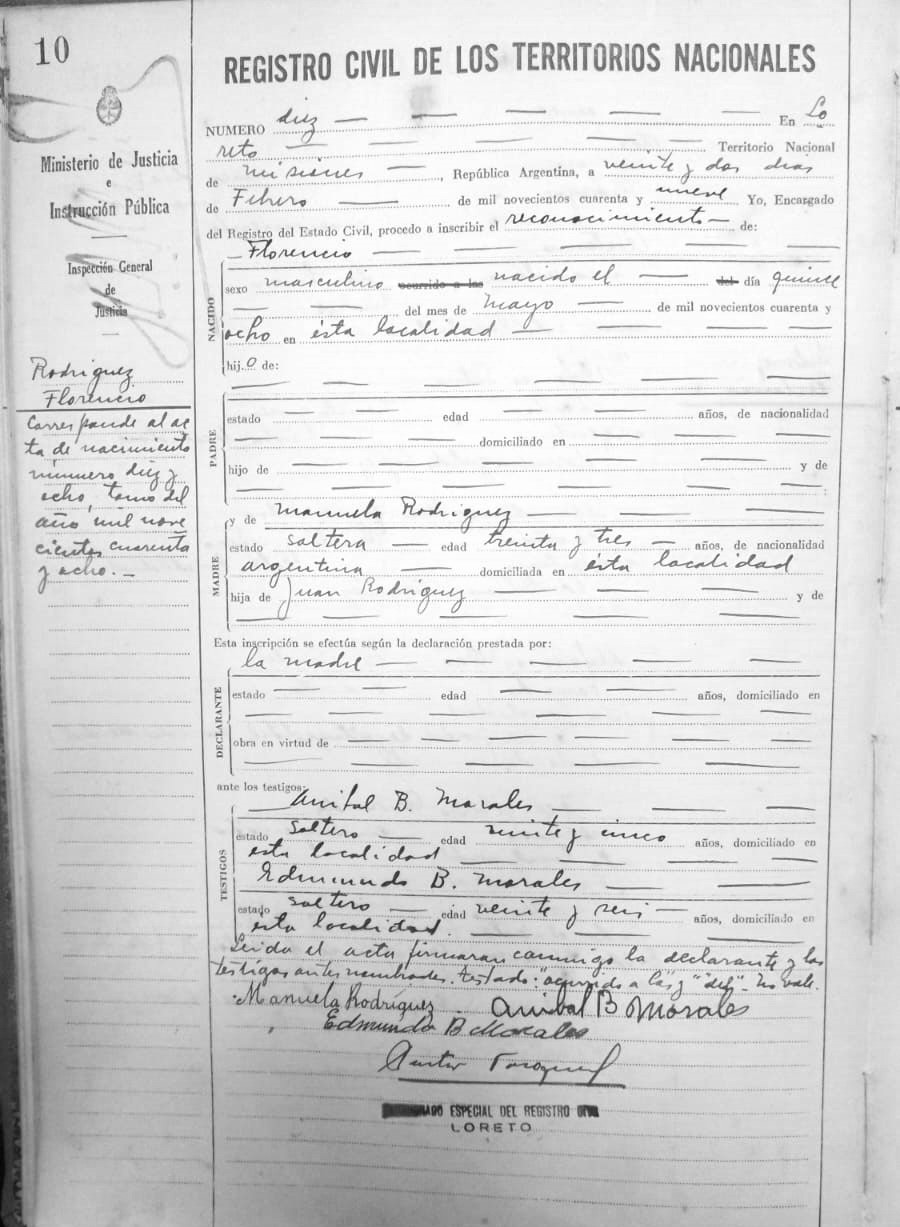 10
Ministerio de Justicia
e
Instrucción Pública
Inspección General
de
Justicia
Rodriguez
Florencio
Corresponde al ac
ta de nacimiento
número diez y
ocho, tomo del
año, mil nove
cientos cuarenta
y ocho. —
REGISTRO CIVIL DE LOS TERRITORIOS NACIONALES
NUMERO diez — — — — — En Lo
reto — — — — Territorio Nacional
de Misiones —, República Argentina, a veinte y dos dias
de Febrero — de mil novecientos cuarenta y nueve Yo, Encargado
del Registro del Estado Civil, procedo a inscribir el reconocimiento — de:
— Florencio — — — — —
NACIDO
sexo masculino ocurrido a las nacido el — del día quince
— — del mes de Mayo — de mil novecientos cuarenta y
ocho en ésta localidad — — — —
hij.o de:
PADRE
estado — — edad — — — años, de nacionalidad
— — — domiciliado en — — —
hijo de — — — — — y de
— — — — — — :
MADRE
y de Manuela Rodriguez — — —
estado soltera — edad treinta y tres — años, de nacionalidad
argentina — domiciliada en ésta localidad
hija de Juan Rodriguez — — — y de
Esta inscripción se efectúa según la declaración prestada por:
la madre — — — — —
DECLARANTE
estado — — edad — — años, domiciliado en
obra en virtud de — — — — —
ante los testigos:
TESTIGOS
Anibal B. Morales — — —
estado soltero — edad veinte y cinco años, domiciliado en
esta localidad — — — —
Edmundo B. Morales — —
estado soltero — edad veinte y seis — años, domiciliado en
esta localidad. — — —
Leida el acta firmaran conmigo la declarante y los
testigos antes nombrados. testado: "ocurrido a las" y "del" - No vale.
Manuela Rodríguez Anibal B Morales
Edmundo B Morales
ESPECIAL DEL REGISTRO CIVIL
LORETO